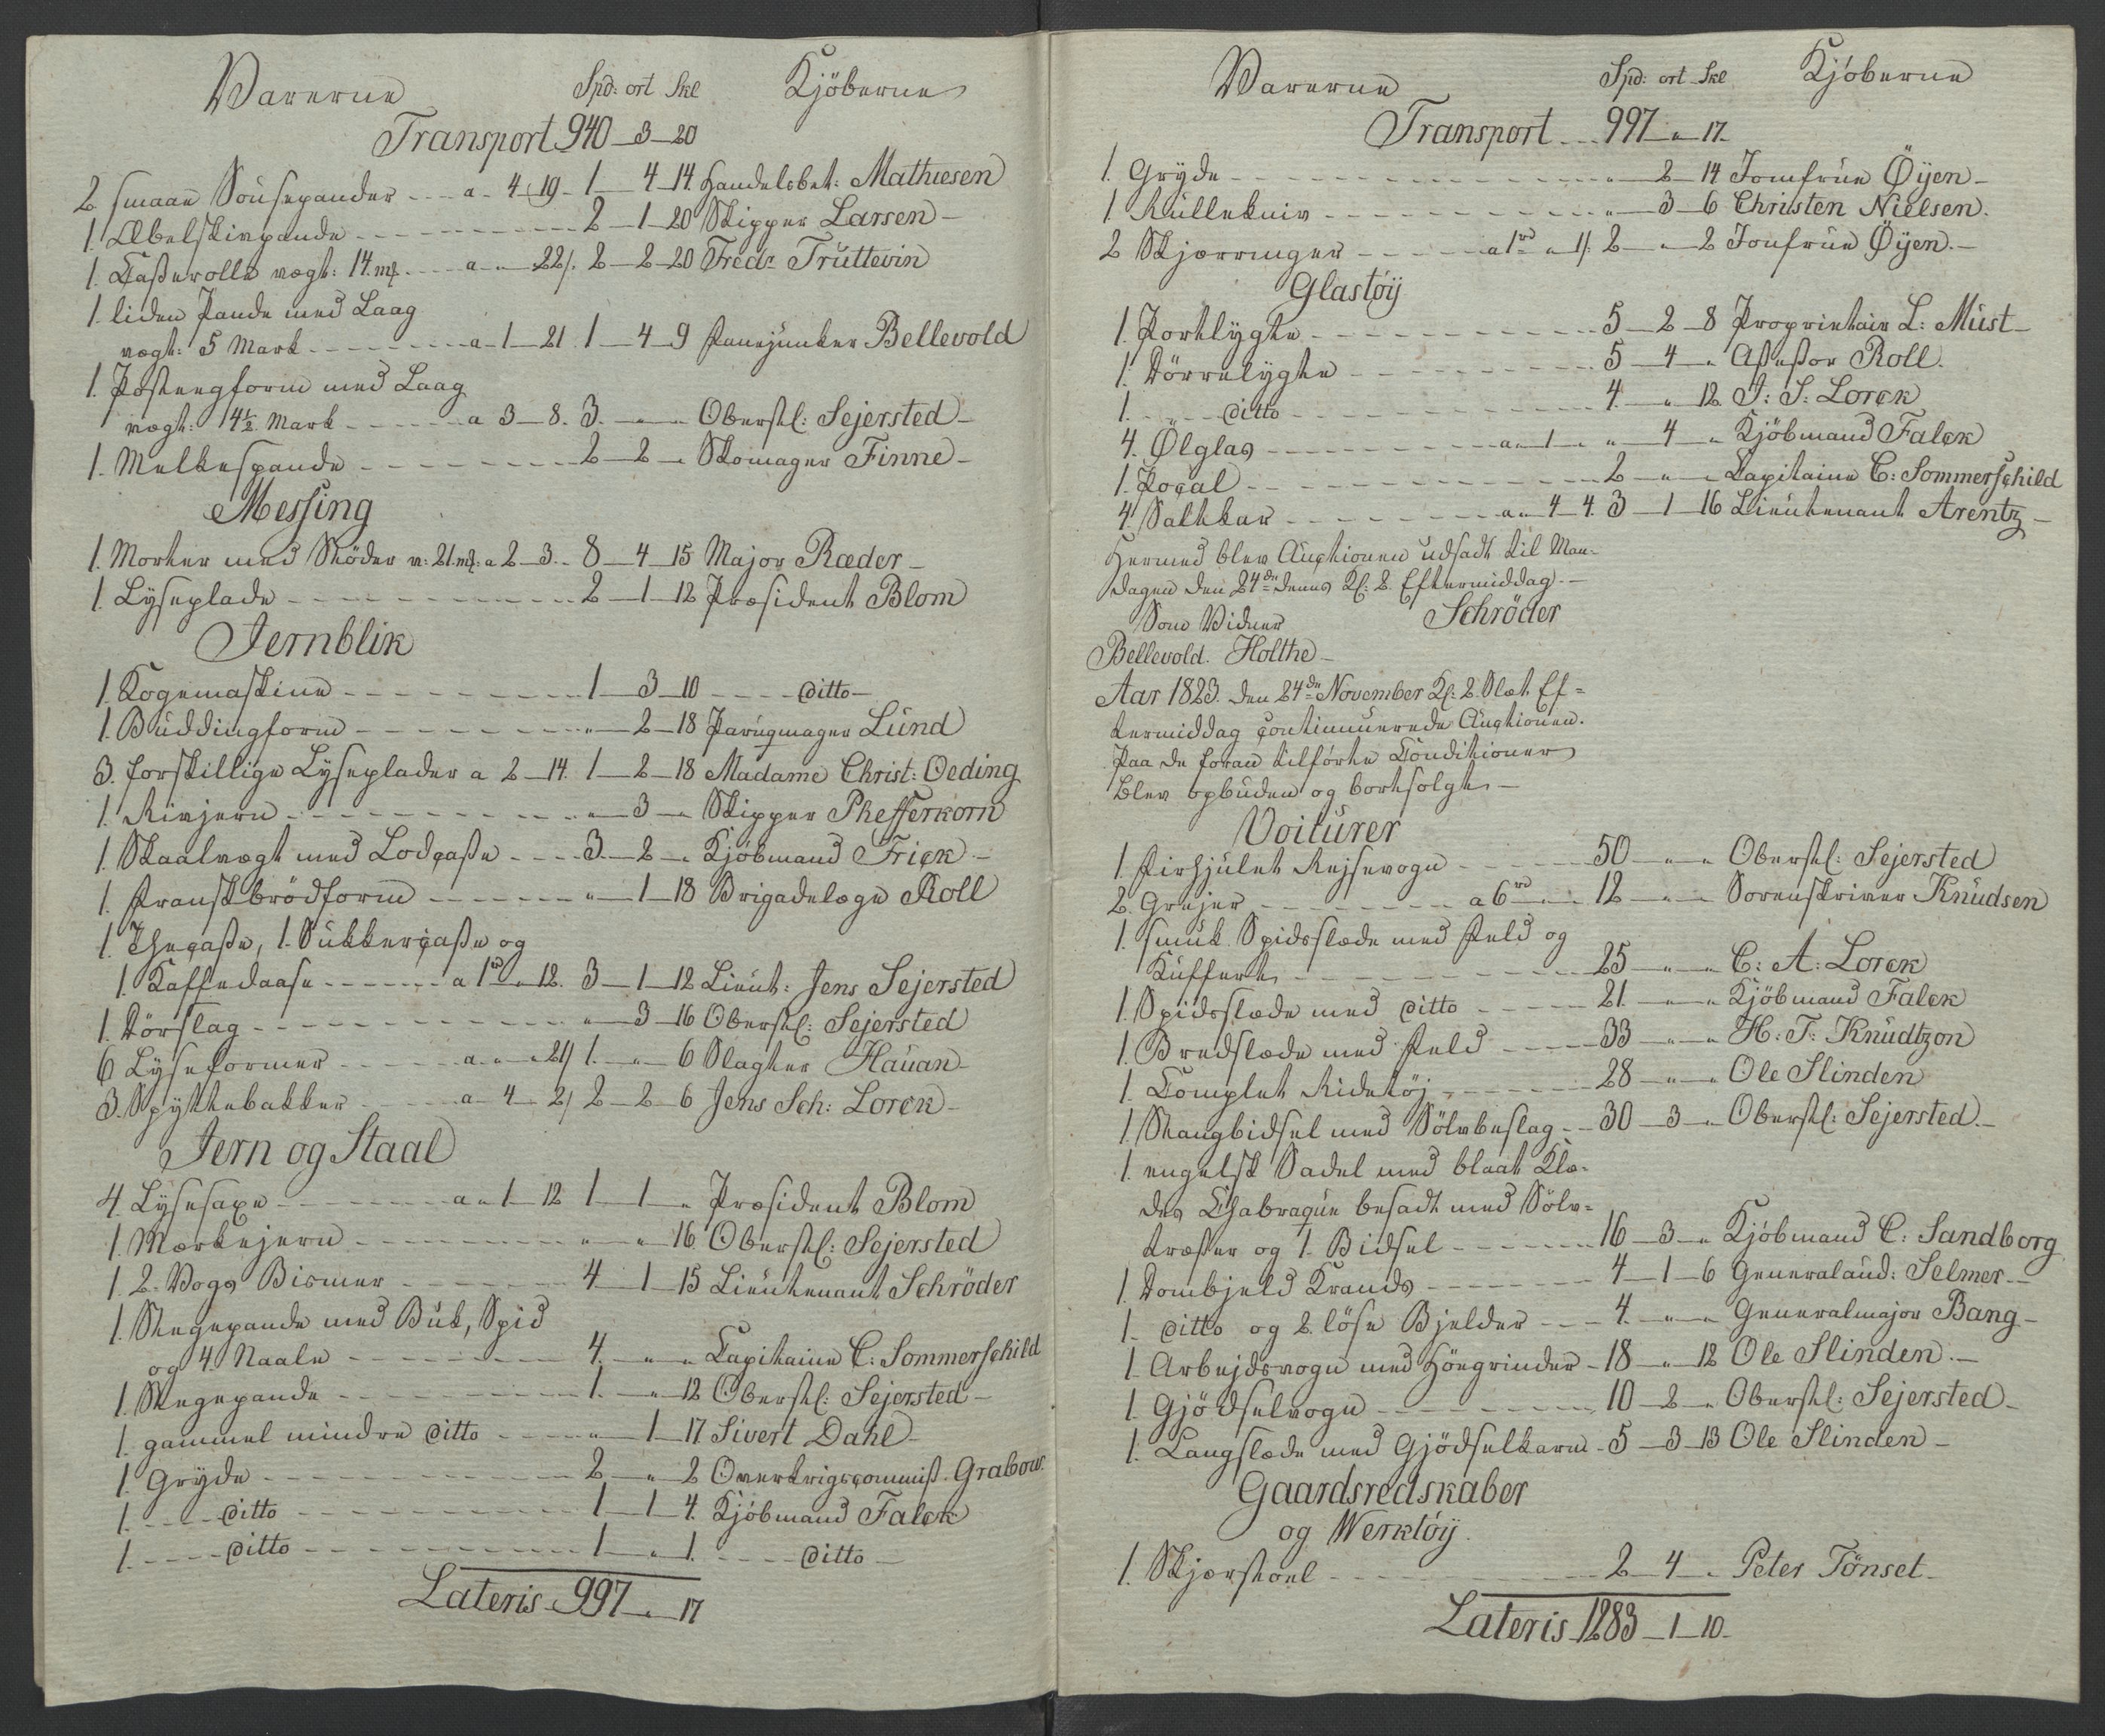 Varerne Spd: ort Skl Kjöberne
Transport 940 - 3 - 20
2 smaae Sousepander - - - a - 4 - 19 - 1 - 4 - 14 Handelsbet: Mathiesen
1. Æbelskivpande - - - 2 - 1 - 20 Skipper Larsen -
1. Casserolle vægt: 14 mk - - a - " - 22 /. 2 - 2 - 20 Fredr Trüttevin
1. liden Pande med Laag
vægt: 5 Mark - - - a - 1 - 21. 1 - 4 - 9 Kanejunker Bellevold
1. Postengform med Laag
vægt: 4½ Mark - - - a 3 - 8. 3. - " - " Oberstl: Sejersted -
1. Melkespande - - - 2 - 2 - " Skomager Finne -
Messing
1. Morter med Stöder v: 21. mk: a 2 - 3. - 8 - 4 - 15 Major Ræder -
1. Lyseplade - - - 2 - 1 - 12 Præsident Blom
Jernblik
1. Kogemaskine - - - 1 - 3 - 10 - - - ditto -
1. Buddingform - - - " - 2 - 18 Parüqmager Lünd
3. forskillige Lyseplader a 2 - 14. 1 - 2 - 18 Madame Christ: Oeding
1. Rivjern - - - " - 3 - " Skipper Phefferkorn
1. Skaalvægt med Lodcasse - - - 3. - 2 - " Kjöbmand Frick -
1. Franskbrödform - - - " - 1 - 18 Brigadelæge Roll
1. Thecasse, 1. Sukkercasse og
1. Kaffedaase - - - a 1rd " - 12. 3 - 1 - 12 Lieut: Jens Sejersted
1. Dörslag - - - " - 3 - 16 Oberstl: Sejersted
6 Lyseformer - - - a - " - " 21/ 1. - " - 6 Slagter Haüan -
3. Spyttebakker - - - a - 4 - 2/ 2 - 2 - 6 Jens Sch: Lorck -
Jern og Staal
4. Lysesaxe - - - a " 1 - 12 1 - 1 - " Præsident Blom
1. Mærkejern - - - " - " - 16. Oberstl: Sejersted
1. 2. Vogs Bismer - - - 4 - 1 - 15 Lieutenant Schröder
1. Stegepande med Buk, Spid
og 4. Naale - - - 4. - " - " Capitaine C: Sommerschild
1. Stegepande - - - 1. - " - 12 Oberstl: Sejersted -
1. gammel mindre ditto - - - " - 1 - 17 Sivert Dahl -
1. Gryde - - - 2 - " - 2 Overkrigscommiss. Grabow.
1. - - - ditto - - - 1 - 1 - 4. Kjöbmand Falck
1. - - - ditto - - - 1 - " - 1. - - - ditto -
Lateris - 997 - " - 17
Varerne Spd: ort Skl Kjöberne
Transport - - 997 - " - 17.
1. Gryde - - - " - 2 - 14 Jomfrue Öÿen -
1. Rullekniv - - - " - 3 - 6 Christen Nielsen.
2 Skjærringer - - - a 1rd " 1/. 2 - " - 2 Jomfrue Öÿen. -
Glastöÿ
1. Portlygte - - - 5 - 2 - 8 Proprietair L: Müst -
1. Dörrelygte - - - 5 - 4 - " Assessor Roll.
1. - - - ditto - - - 4. - " - 12. J: S: Lorck
4. Ölglas - - - a " 1 - " " - 4 - " Kjöbmand Falck
1. Pocal - - - 2 - " - " Capitaine C: Sommerschild
4 Saltkar - - - a " 4 - 4. 3 - 1 - 16 Lieutenant Arentz -
Hermed blev Auctionen udsadt til Man-
dagen den 24de dennes Kl: 2. Eftermiddag. -
Som Vidner Schröder
Bellevold. Holthe -
Aar 1823. den 24de November Kl: 2. Slæt Ef-
termiddag continuerede Auctionen.
Paa de foran tilförte Conditioner
blev opbuden og bortsolgt. -
Voitürer
1. Firhjulet Rejsevogn - - - 50 - " - " Oberstl: Sejersted
2. Grejer - - - a 6rd - " - 12 - " - " Sorenskriver Knüdsen
1. smuk Spidsslæde med Feld og
Kuffert. - - - 25 - " - " C: A: Lorck
1. Spidsslæde med ditto - - - 21. - " - " Kjöbmand Falck
1. Bredslæde med Feld - - - 33 - " - " H: F: Knüdtzon
1. Complet Ridetöj - - - 28 - " - " Ole Slinden
1. Stangbidsel med Sölvbeslag - - 30 - 3 - " Oberstl: Sejersted. -
1. engelsk Sadel med blaat Klæ-
des Chabraque besadt med Sölv-
træsser og 1. Bidsel - - - 16 - 3 - " Kjöbmand C: Sandborg
1. Dombjeld Krands - - - 4 - 1 - 6 Generalaud: Selmer. -
1. ditto og 2. löse Bjelder - - - 4. - " - " Generalmajor Bang -
1. Arbejdsvogn med Höegrinder - 18 - " - 12 Ole Slinden. -
1. Gjödselvogn - - - 10 - 2 - " Oberstl: Sejersted -
1. Langslæde med Gjödselkarm - 5 - 3 - 13 Ole Slinden -
Gaardsredskaber
og Werktöÿ.
1. Skjærstoel - - - 2 - 4 - " Peter Tönset -
Lateris - 1283 - 1 - 10 -